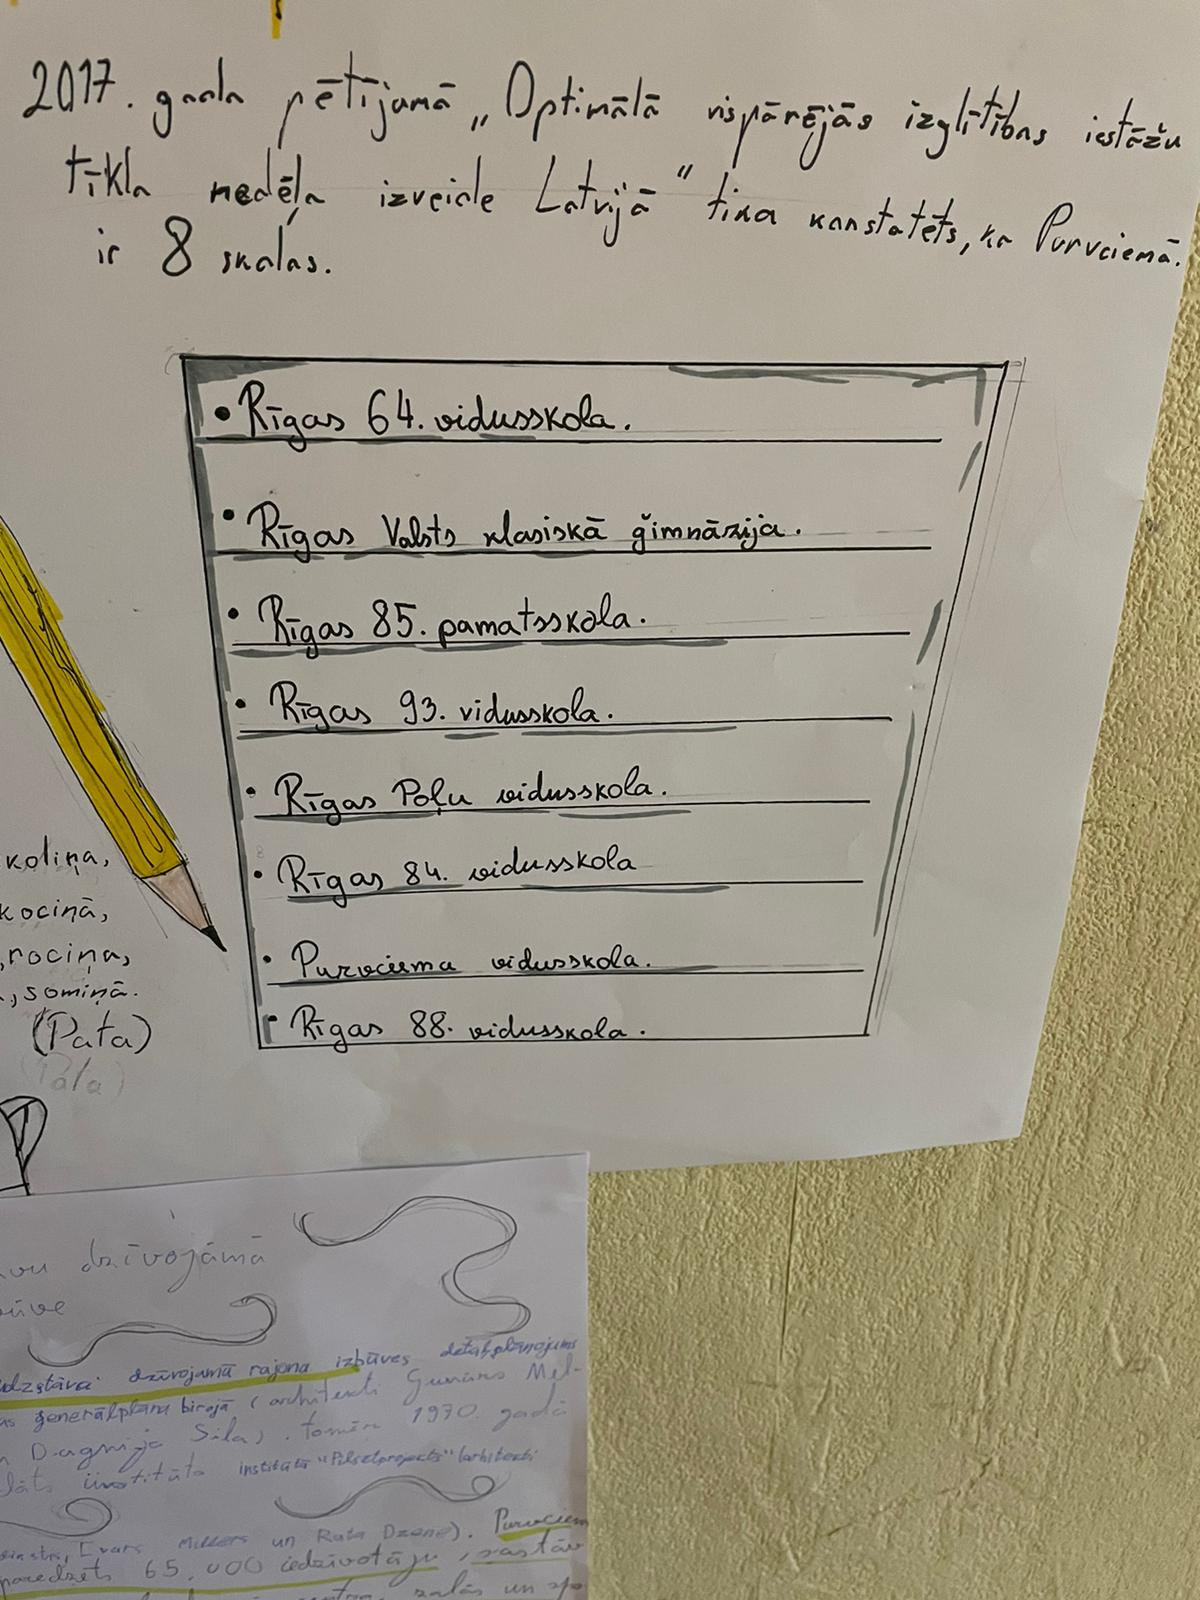 2017. gada pētījumā „Optimālā vispārējās izglītības iestāžu
tīkla modeļa izveide Latvijā" tika konstatēts, ka Purvciemā.
ir 8 skolas.
• Rīgas 64. vidusskola.
• Rīgas Valsts klasiskā ģimnāzija.
• Rīgas 85. pamatsskola.
• Rīgas 93. vidusskola.
• Rīgas Poļu vidusskola.
• Rīgas 84. vidusskola
• Purvciema vidusskola.
• Rīgas 88. vidusskola.
koliņa,
kociņā,
rociņa,
somiņā.
(Pata)
dzīvojamā
dzīvojamā rajona izbūves detālplānojums
ģenerālplāna birojā (arhitekti Gunārs Mel-
Dagnija Sila). tomēr 1970. gadā
institūts institūta "Pilsētprojekts" (arhitekti
Ivars Millers un Rata Dzene). Purvciem
paredzēts 65.000 iedzīvotāju, sastāv
zaļās un spo